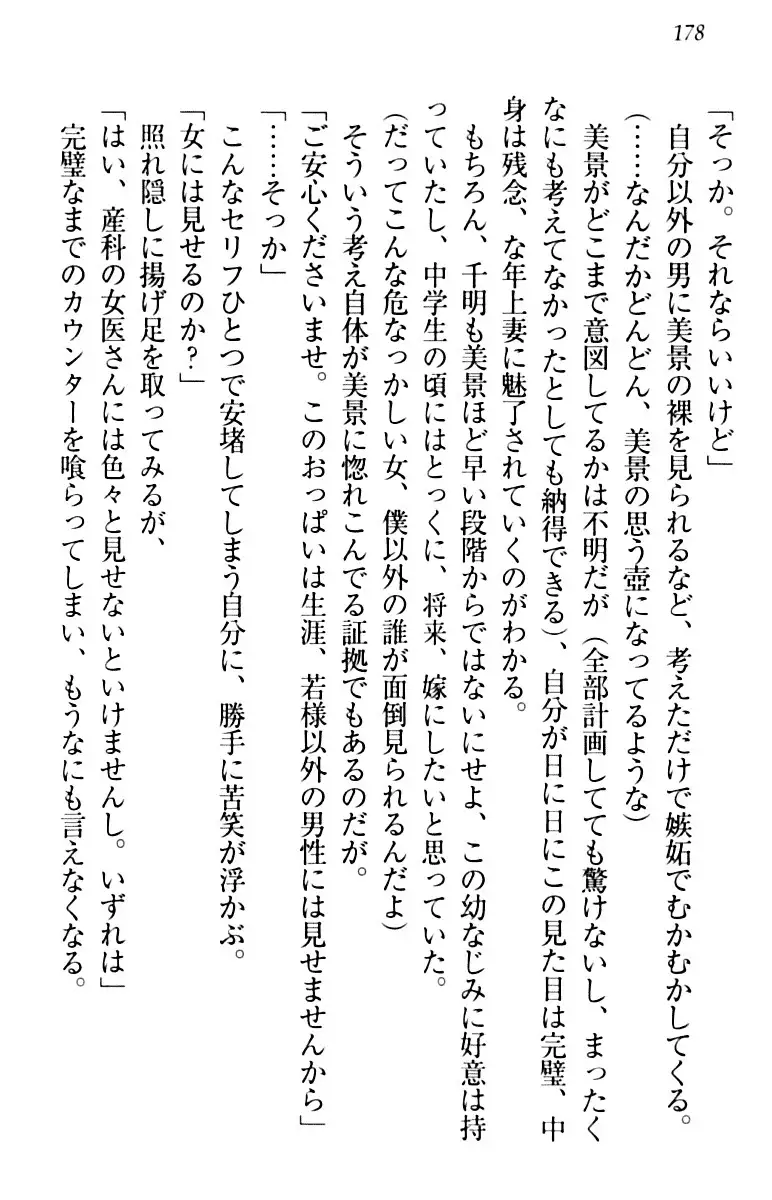 178
「そっか。それならいいけど」
自分以外の男に美景の裸を見られるなど、考えただけで嫉妬でむかむかしてくる。
(……なんだかどんどん、美景の思う壺になってるような)
美景がどこまで意図してるかは不明だが(全部計画してても驚けないし、まったく
なにも考えてなかったとしても納得できる)、自分が日に日にこの見た目は完璧、中
身は残念、な年上妻に魅了されていくのがわかる。
もちろん、千明も美景ほど早い段階からではないにせよ、この幼なじみに好意は持
っていたし、中学生の頃にはとっくに、将来、嫁にしたいと思っていた。
(だってこんな危なっかしい女、僕以外の誰が面倒見られるんだよ)
そういう考え自体が美景に惚れこんでる証拠でもあるのだが。
「ご安心くださいませ。このおっぱいは生涯、若様以外の男性には見せませんから」
「……そっか」
こんなセリフひとつで安堵してしまう自分に、勝手に苦笑が浮かぶ。
「女には見せるのか?」
照れ隠しに揚げ足を取ってみるが、
「はい、産科の女医さんには色々と見せないといけませんし。いずれは」
完璧なまでのカウンターを喰らってしまい、もうなにも言えなくなる。